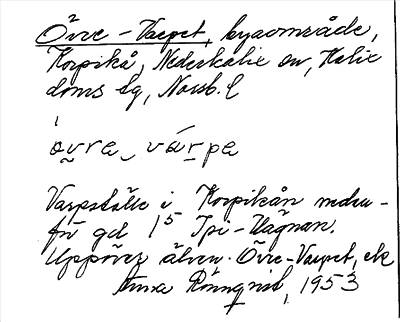 Övre-Varpet, byaområde,
Korpikå, Nederkalix sn, Kalix
doms lg, Norrb. l
övre várpe
Varpställe i Korpikån neden-
för gd 1⁵ Ipi-Hagnan.
Uppöver älven. Övre-Varpet, etc
Anna Rönnqvist, 1953